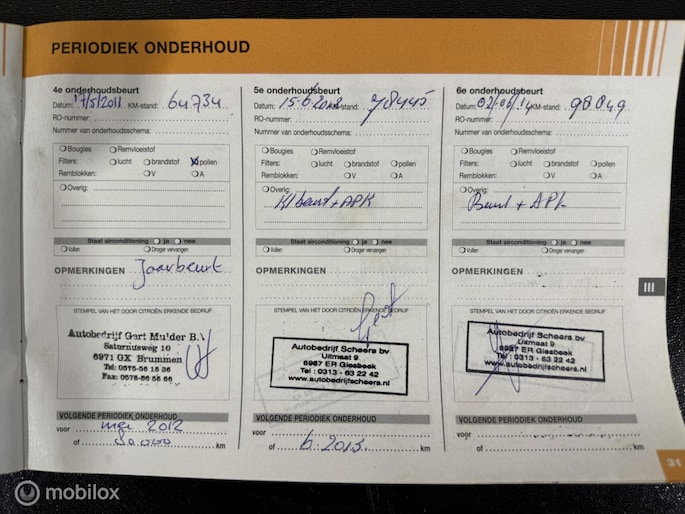 PERIODIEK ONDERHOUD
4e onderhoudsbeurt
Datum: 17/5/2011 KM-stand: 64.734
RO-nummer:
Nummer van onderhoudsschema:
Bougies Remvloeistof
Filters: lucht brandstof pollen
Remblokken: V A
Overig:
Staat airconditioning ja nee
Vullen Droger vervangen
OPMERKINGEN Jaarbeurt
STEMPEL VAN HET DOOR CITROËN ERKENDE BEDRIJF
Autobedrijf Gert Mulder B.V.
Saturnusweg 10
6971 GX Brummen
Tel: 0575-56 18 36
Fax: 0575-56 56 66
VOLGENDE PERIODIEK ONDERHOUD
voor mei 2012
of 90.000 km
5e onderhoudsbeurt
Datum: 15-6-2012 KM-stand: 78445
RO-nummer:
Nummer van onderhoudsschema:
Bougies Remvloeistof
Filters: lucht brandstof pollen
Remblokken: V A
Overig:
Kl beurt + APK
Staat airconditioning ja nee
Vullen Droger vervangen
OPMERKINGEN
STEMPEL VAN HET DOOR CITROËN ERKENDE BEDRIJF
Autobedrijf Scheers bv
Uitmaat 9
6987 ER Giesbeek
Tel : 0313 - 63 22 42
www.autobedrijfscheers.nl
VOLGENDE PERIODIEK ONDERHOUD
voor
of 6-2013 km
6e onderhoudsbeurt
Datum: 02/06/14 KM-stand: 98049
RO-nummer:
Nummer van onderhoudsschema:
Bougies Remvloeistof
Filters: lucht brandstof pollen
Remblokken: V A
Overig:
Beurt + APK
Staat airconditioning ja nee
Vullen Droger vervangen
OPMERKINGEN
STEMPEL VAN HET DOOR CITROËN ERKENDE BEDRIJF
Autobedrijf Scheers bv
Uitmaat 9
6987 ER Giesbeek
Tel : 0313 - 63 22 42
www.autobedrijfscheers.nl
VOLGENDE PERIODIEK ONDERHOUD
voor
of km
III
31
mobilox